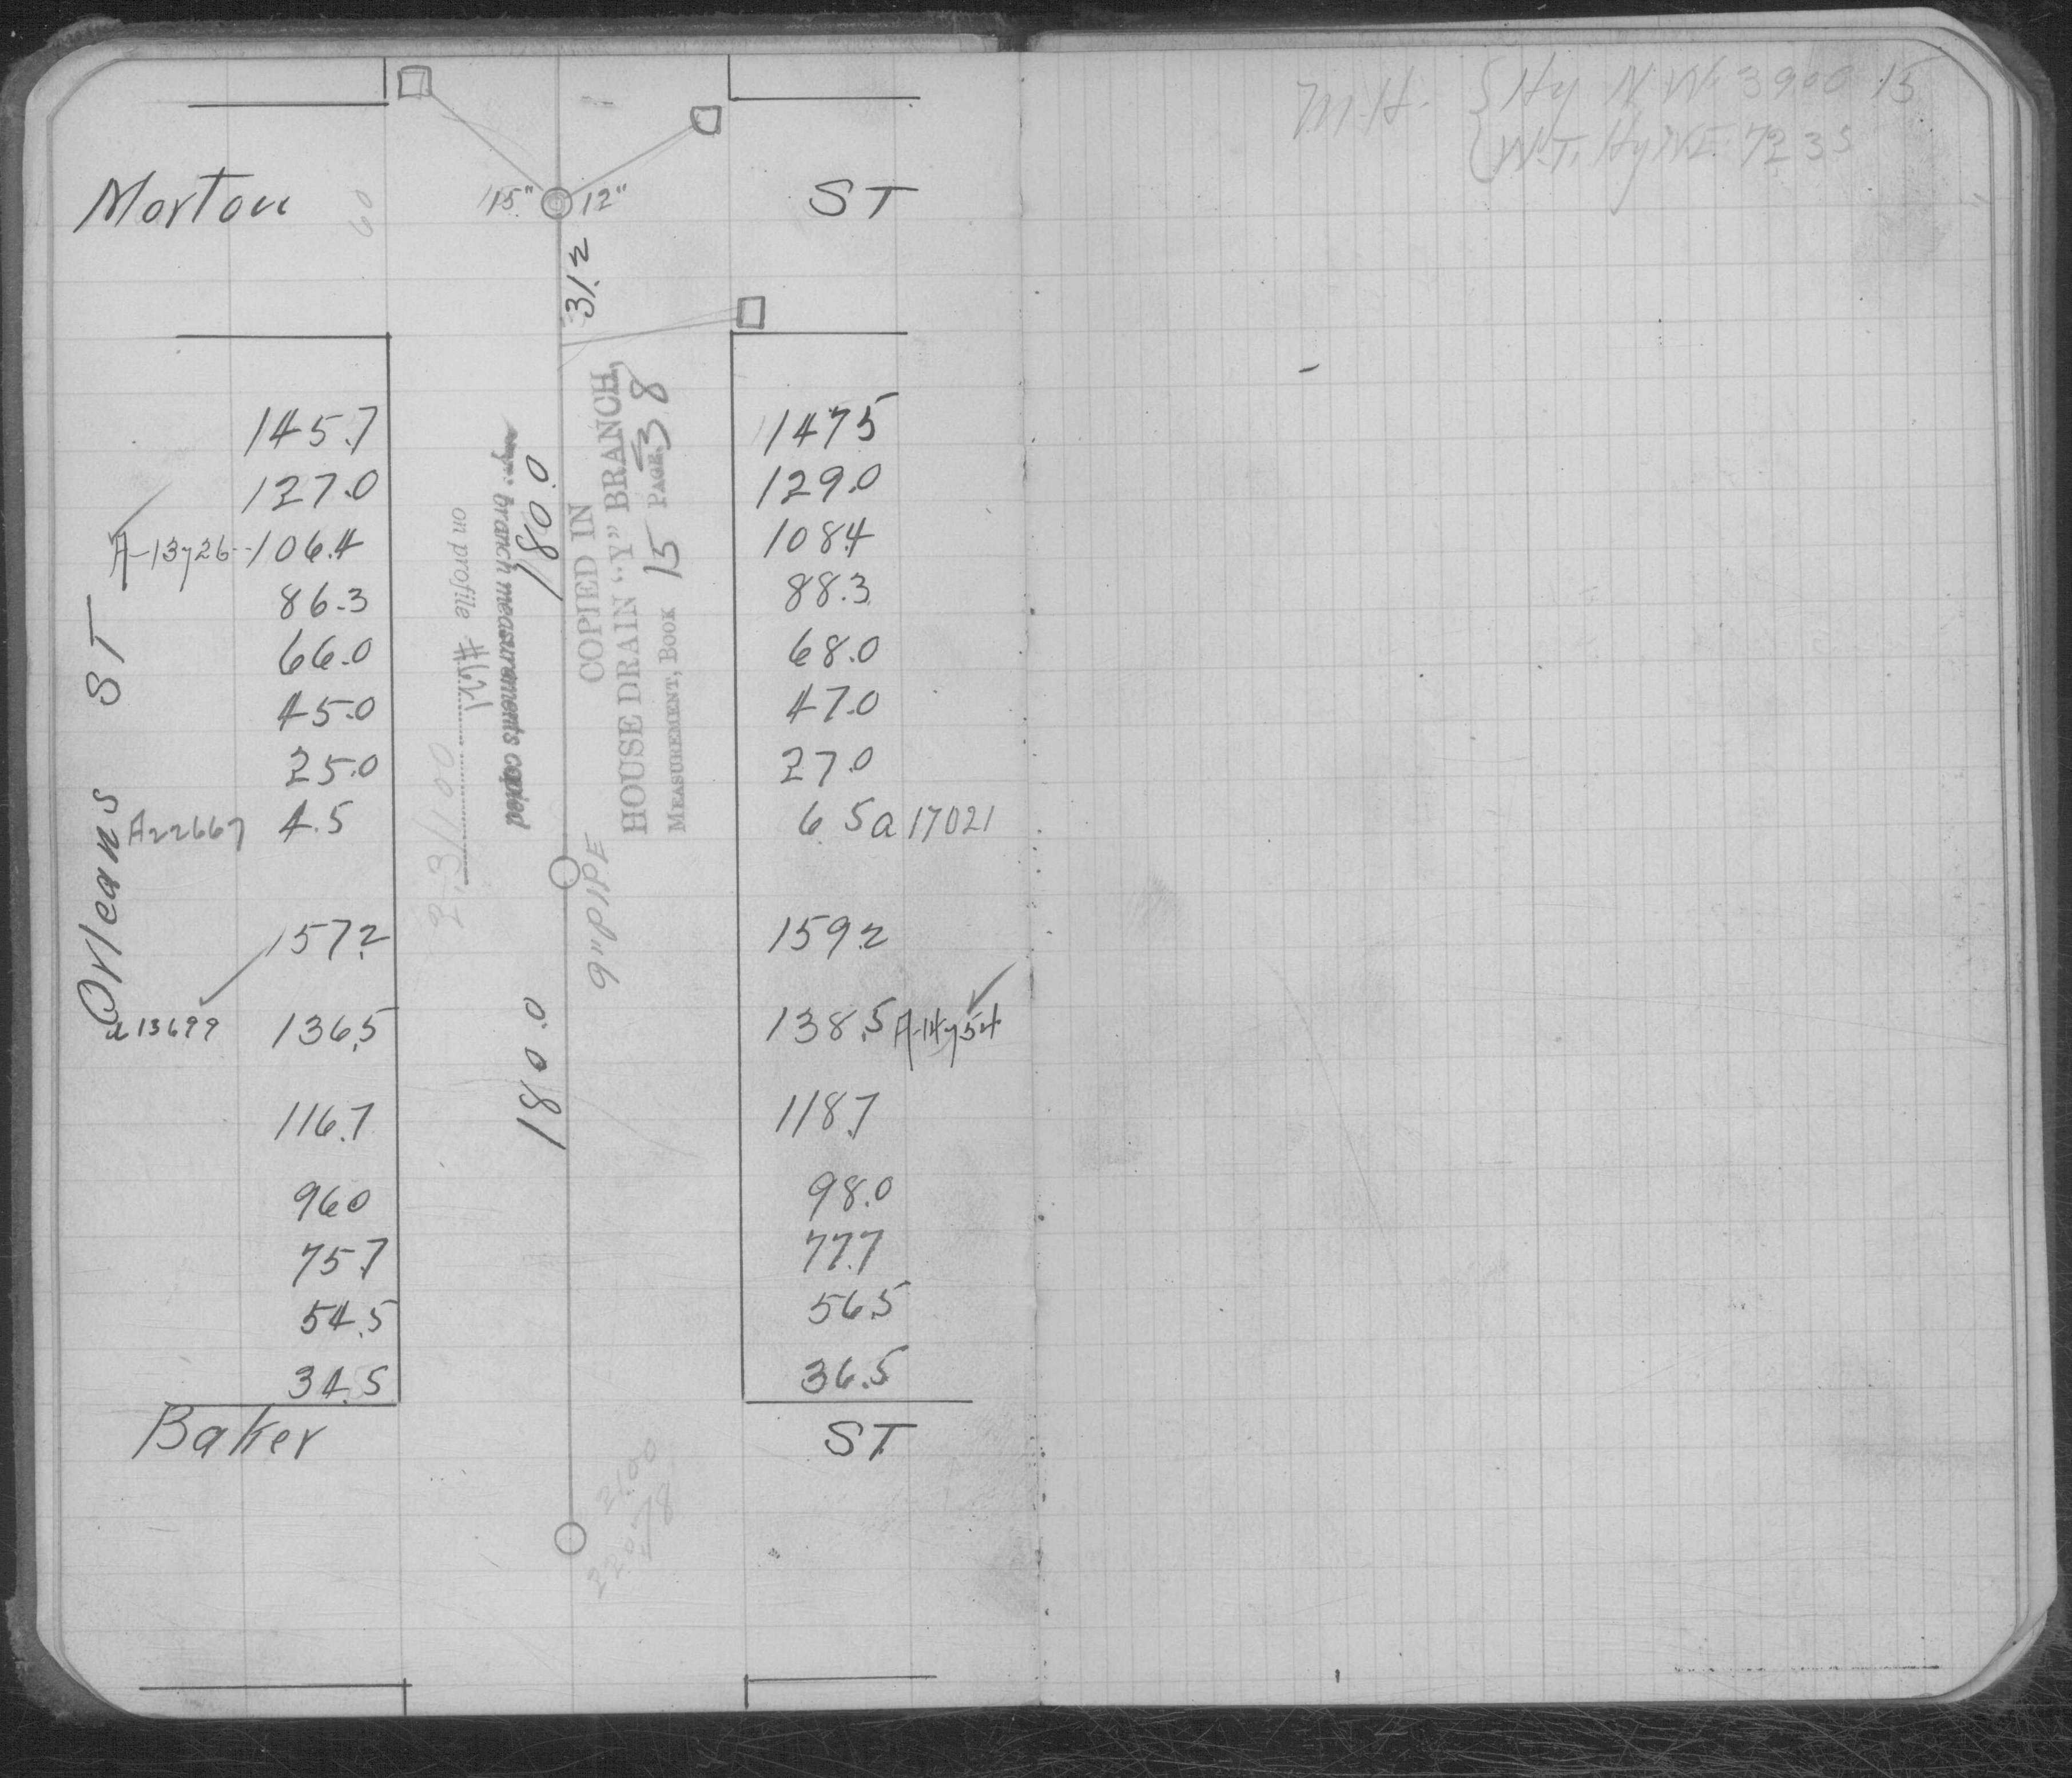 M.H. { Hy N.W. 39.00 15
{ W.T. Hy N.E. 72.35
Morton ST
60
15" 12"
31.2
145.7 1475
127.0 129.0
A-13726 106.4 1084
86.3 88.3
66.0 68.0
45.0 47.0
25.0 27.0
A22667 4.5 6.5 a 17021
157.2 159.2
a 13699 136.5 138.5 A-14754
116.7 118.7
960 98.0
75.7 77.7
54.5 56.5
34.5 36.5
Orleans ST
180.0
180.0
9" PIPE
branch measurements copied
on profile
23/100
COPIED IN
HOUSE DRAIN "Y" BRANCH,
MEASUREMENT, BOOK 15 PAGE 38
Baker ST
21.00
78